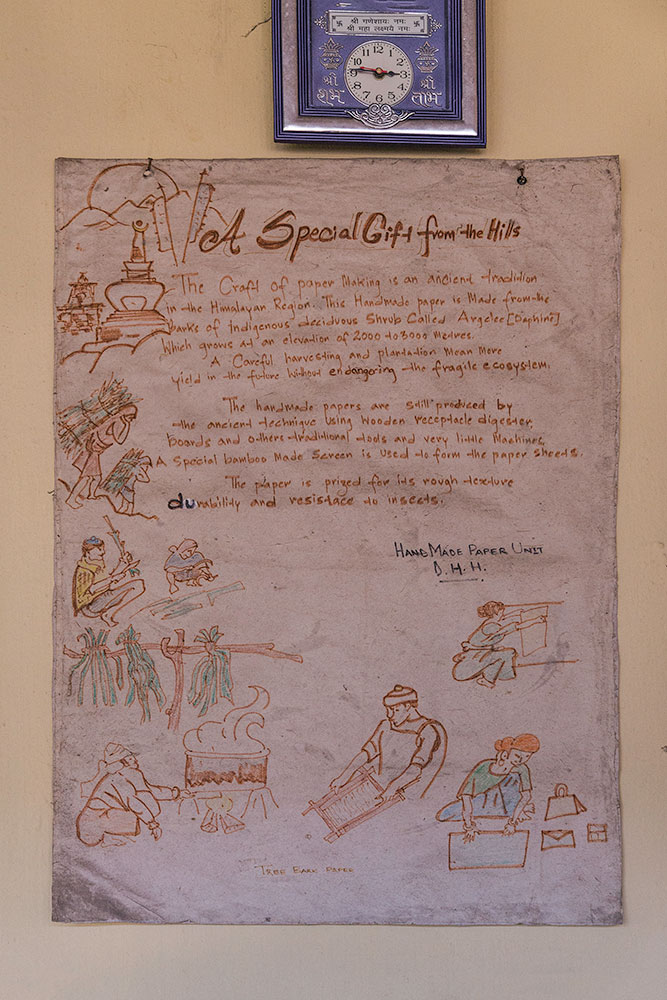 श्री गणेशाय: नम:
श्री महा लक्ष्म्यै नम:
12
1
2
3
4
5
6
7
8
9
10
11
श्री शुभ
श्री लाभ
A Special Gift from the Hills
The Craft of paper Making is an ancient tradition
in the Himalayan Region. This Handmade paper is Made from the
barks of Indigenous deciduous Shrub Called Argelee [Daphine]
Which grows at an elevation of 2000 to 3000 Metres.
A Careful harvesting and plantation Mean More
yield in the future Without endangoring the fragile ecosystem.
The handmade papers are still produced by
the ancient technique using Wooden receptacle digester,
boards and others traditional tools and very little Machines,
A Special bamboo Made Screen is Used to form the paper sheets.
The paper is prized for its rough texture
durability and resistace to insects.
HAND MADE PAPER UNIT
D.H.H.
TREE BARK PAPER